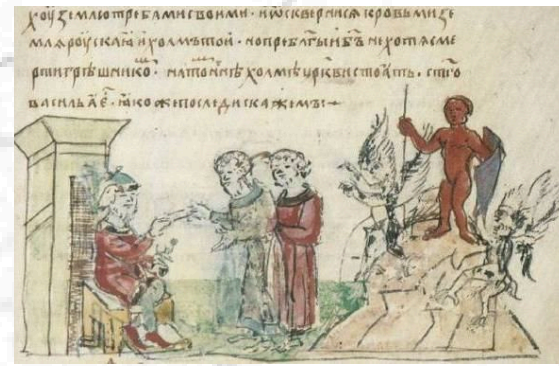 хоу землю требами своими · и ѡсквернисѧ кровьми зе
млѧ роускаꙗ и холмътой · но преблагъıи бъ не хотѧ сме
рти грѣшнико · на томъ нъıнѣ холмѣ цркви стоить · ст҃го
васильꙗ е҃ · ꙗкоже последи скажемъ